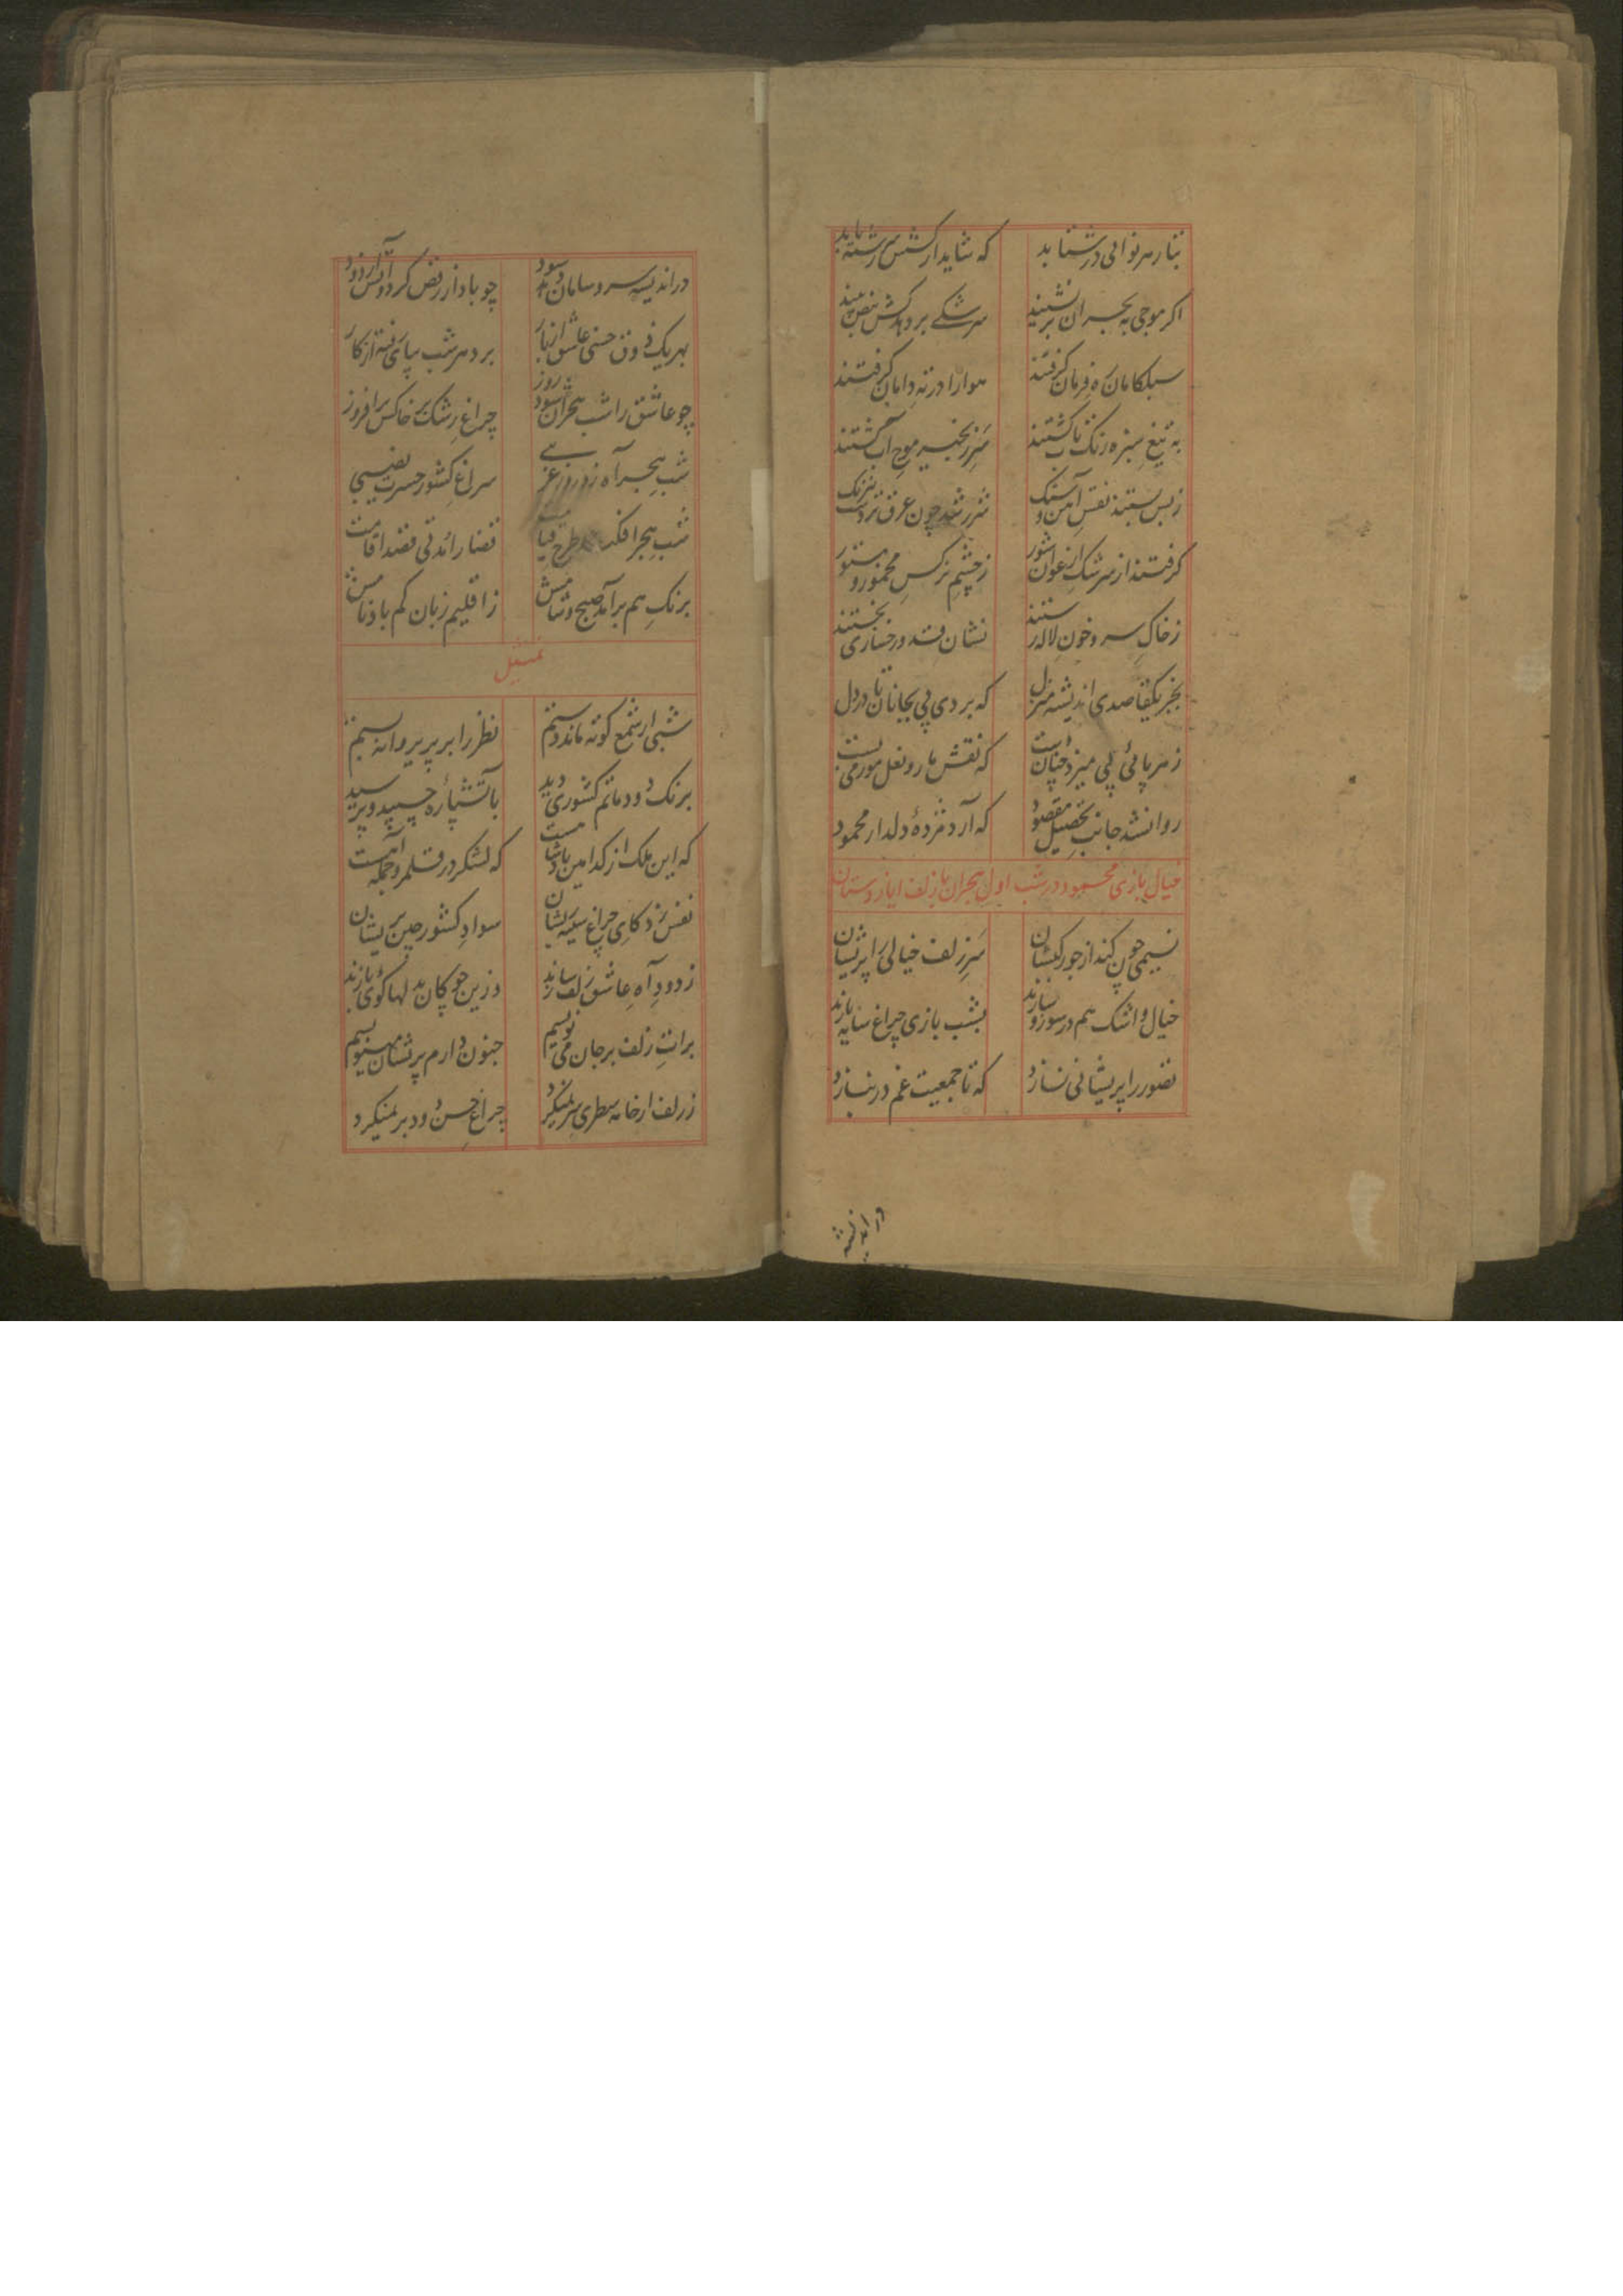 بتار هر نوائی در شتابد که شاید از کشش سررشته یابد
اکر موجی به بحر ان بر نشیند سرشکی بر دهد کش نبض بیند
سبککامان ره فرمان کرفتند هوا را در ته دامان کرفتند
به تیغ سبزه رنک کشتند سر زنجیر موج آب کشتند
ز بس بستند نقش آهن و سنک شرر شد چون عرق
کرفتند از سرشک ارغوان شور ز چشم نرکس مخمور و مستور
ز خاک سرو و خون لاله رستند نشان قد و رخساری بجستند
بجز یکقاصدی اندیشه منزل که بردی پی بجانان تا در دل
ز هر پائی پی میزد چنان که نقش مار و نعل مور می بست
روانشد جانب تحصیل مقصود که آرد مژدهٔ دلدار محمود
خیال بازی محمود در شب اول هجران با زلف ایاز
نسیمی چون کند از جور کیشان سر زلف خیالی را پریشان
خیال و اشک هم در سوز و سازند بشب بازی چراغ سایه بازند
تصور را پریشانی نسازد که تا جمعیت غم در نسازد
در اندیشه
در اندیشه سر و سامان سود چو باد از رقص کرد آرد زود
بهر یک ذوق حسنی عاشق برد هر شب بپای فتنه از کار
چو عاشق را شب هجران شود روز چراغ رشک بر خاکس برافروز
شب هجر آه سراغ کشور حسرت نصیبی
شب هجر افکند طرح قیامت قضا راند قصد اقامت
برنک هم برآمد صبح و شامش ز اقلیم زبان کم باد نامش
تمثیل
شبی از شمع کوته ماند دستم نظر را بر پر پروانه بستم
برنک دود ماتم کشوری دید بآتشپاره چسپید و پرسید
که این ملک از کدامین که لشکر در قلمرو جمله
نفس زد کای چراغ سینه ریشان سواد کشور چین پریشان
ز دود آه عاشق زلف سازند وزین چوکان بدلها کوی بازند
برات زلف بر جان می نویسم جنون دارم پریشان مینویسم
ز زلف ار خامه سطری سر نمیکرد چراغ حسن دود بر نمیکرد